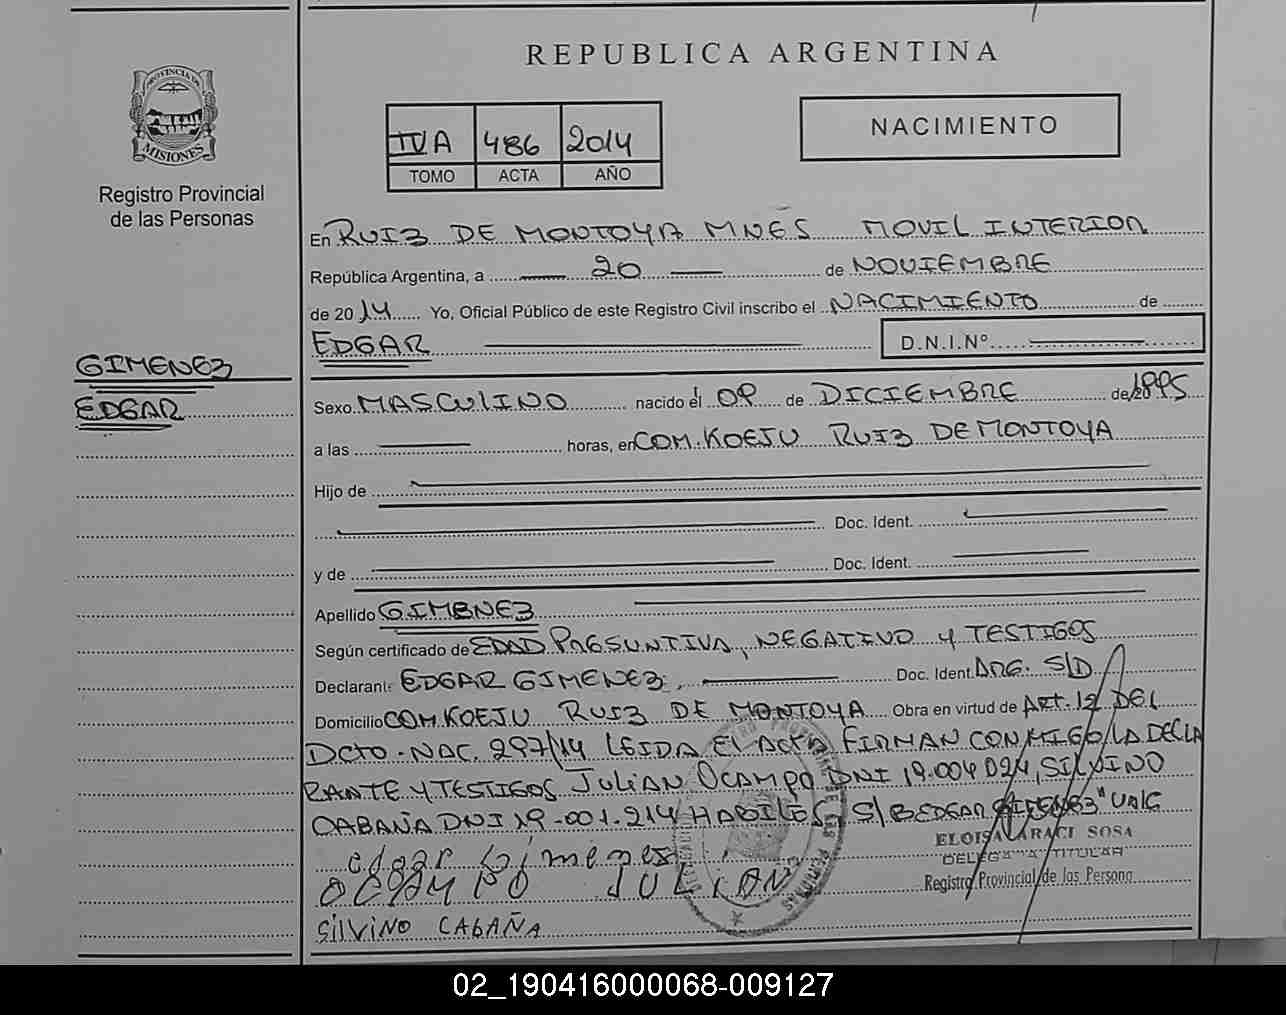 REPUBLICA ARGENTINA
PROVINCIA DE
MISIONES
Registro Provincial
de las Personas
IVA 486 2014
TOMO ACTA AÑO
NACIMIENTO
En RUIZ DE MONTOYA MNES MOVIL INTERIOR
República Argentina, a 20 de NOVIEMBRE
de 2014 Yo, Oficial Público de este Registro Civil inscribo el NACIMIENTO de
EDGAR D.N.I.Nº
GIMENEZ
EDGAR
Sexo MASCULINO nacido el 09 de DICIEMBRE de 1995
a las horas, en COM. KOEJU RUIZ DE MONTOYA
Hijo de
Doc. Ident.
y de Doc. Ident.
Apellido GIMENEZ
Según certificado de EDAD PRESUNTIVA, NEGATIVO Y TESTIGOS
Declarant EDGAR GIMENEZ, Doc. Ident. ARG. S/D
Domicilio COM. KOEJU RUIZ DE MONTOYA Obra en virtud de ART. 12 DEL
DCTO. NAC. 297/14 LEIDA EL ACTA FIRMAN CONMIGO LA DECLA
RANTE Y TESTIGOS JULIAN OCAMPO DNI 19.004.024, SILVINO
CABAÑA DNI 19.001.214 HABILES, S/B EDGAR GIMENEZ" VALE
ELOISA ARACI SOSA
DELEGADA TITULAR
Registro Provincial de las Persona
edgar Gimenes
OCAMPO JULIAN
SilviNO CABAÑA
02_190416000068-009127